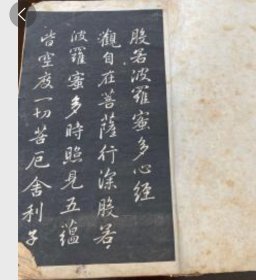 般若波羅蜜多心經
觀自在菩薩行深般若
波羅蜜多時照見五蘊
皆空度一切苦厄舍利子